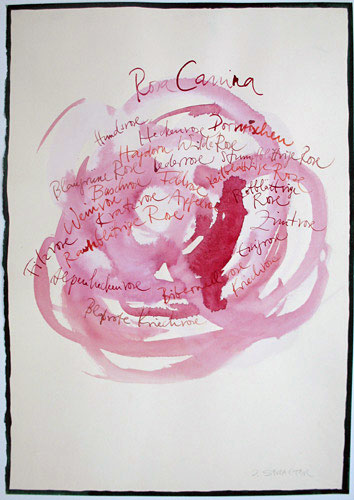 Rosa Canina
Hundsrose Heckenrose Dornröschen
Hagdorn Wilde Rose
Blaugrüne Rose Lederrose Stumpfblättrige Rose
Buschrose Filzrose Keilblättrige Rose
Weinrose Kratzrose Apfelrose Rose
Rauhblättrige Rose Zimtrose
Filzrose Essigrose
Alpenheckenrose Bibernellrose Kriechrose
Blaßrote Kriechrose